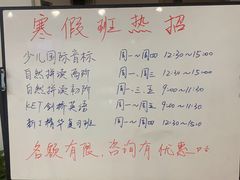 寒假班热招
少儿国际音标 周一~周四 12:30~15:00
自然拼读高阶 周一、三 12:30~15:00
自然拼读初阶 周一.三.五 9:00~11:30
KET剑桥英语 周一~周五 9:00~11:30
新1精华复习班 周一~周四 12:30~15:0
名额有限,咨询有优惠